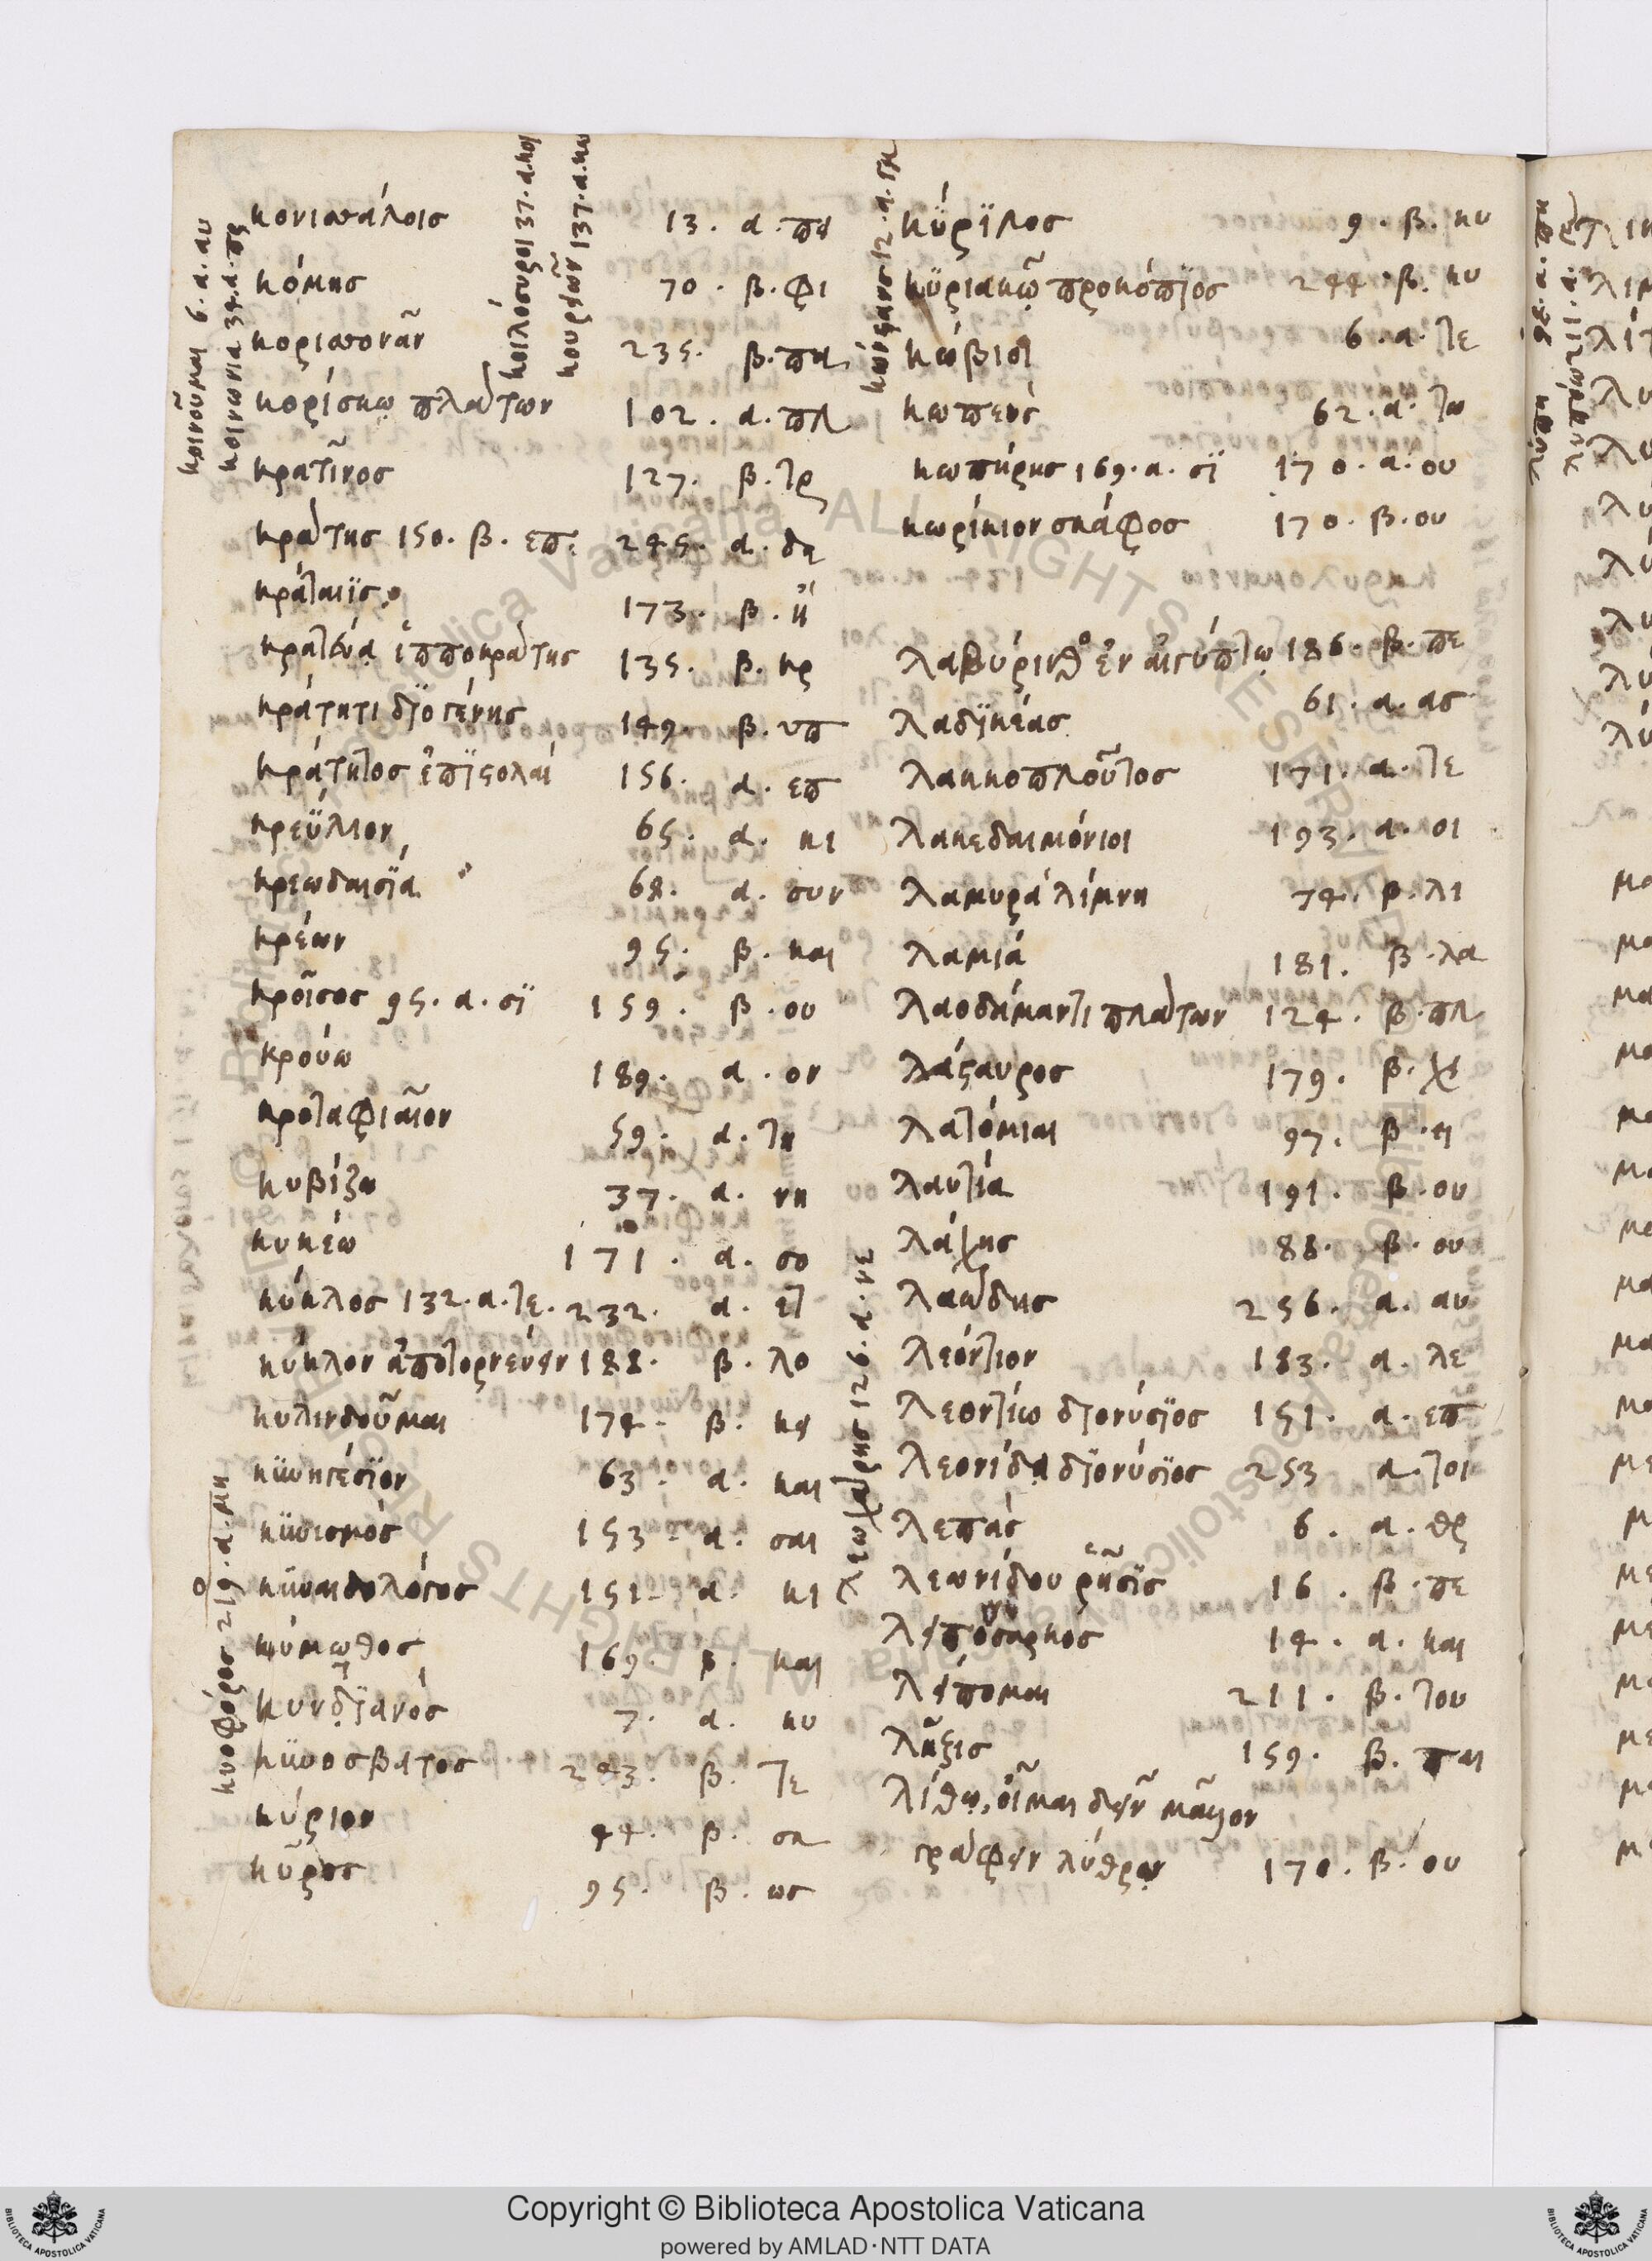 κονισάλοις 13. α. πει
κόμης 70. β. φι
235. β. πα
κορίσκω πλάτων 102. α. πλ
κρατῖνος 127. β. τρ
κράτης 150. β. επ. 245. α. δη
κράταιϊς 173. β. ἢ
κρατεύᾳ ἱπποκράτης 135. β. κρ
κράτητι διογένης 149. β. υπ
κράτητος ἐπιστολαί 156. α. επ
κρεΰλιον 65. α. κι
κρεωδαισία 68. α. συν
κρέων 95. β. και
κροῖσος 95. α. σϊ 159. β. ου
κρούω 189. α. ον
κροταφιαῖον 59. α. τη
κυβίζω 37. α. νη
κυκεώ 171. α. σο
κύκλος 132. α. τε. 232. α. ετ
κύκλον ἀποτορνεύειν 188. β. λο
κυλινδοῦμαι 174. β. κει
κϋνηγέσϊον 63. α. και
κϋνισμός 153. α. σαι
κϋναιδολόγος 151. α. κι
κύμωθος 169. β. και
7. α. κυ
κϋνοσβατος 243. β. τε
κύριον 44. β. σα
κῦρος 95. β. ως
κοινοῦμαι 6. α. αυ
κοινωνία 34. α. πς
κοιλόσυροι 37. α. κοι
137. α. κω
κυοφόρος 219. α. μη
κύριλος 9. β. κυ
κϋριακῷ προκόπϊος 244. β. κυ
κώβιοι 6. α. τε
κωπεύς 62. α. τω
κωπήρης 169. α. σϊ 170. α. ου
κωρίκιον σκάφος 170. β. ου
λαβύρινθος ἐν αἰγύπτω 186. β. πε
λαδϊκέας 61. α. ας
λακκοπλοῦτος 171. α. τε
λακεδαιμόνιοι 193. α. οι
λαμυρά λίμνη 74. β. λι
λαμιά 181. β. λα
λαοδάμαντι πλάτων 124. β. πλ
λάσταυρος 179. β. χει
λατόμιαι 97. β. ει
λαυτία 191. β. ου
λάχης 88. β. ου
λαώδης 256. α. αυ
λεόντιον 183. α. λε
λεοντίω διονύσϊος 151. α. επ
λεονίδᾳ διονύσϊος 253 α. τοι
λεπάς 6. α. θρ
λεωνίδου ῥῆσϊς 16. β. πε
14. α. και
λείπομαι 211. β. του
λῆξις 159. β. παι
λίθῳ, οἶμαι δεῖν μᾶλλον
γράφειν λύθρῳ 170. β. ου
12. α. ση
λεωχάρης 126. α. νε